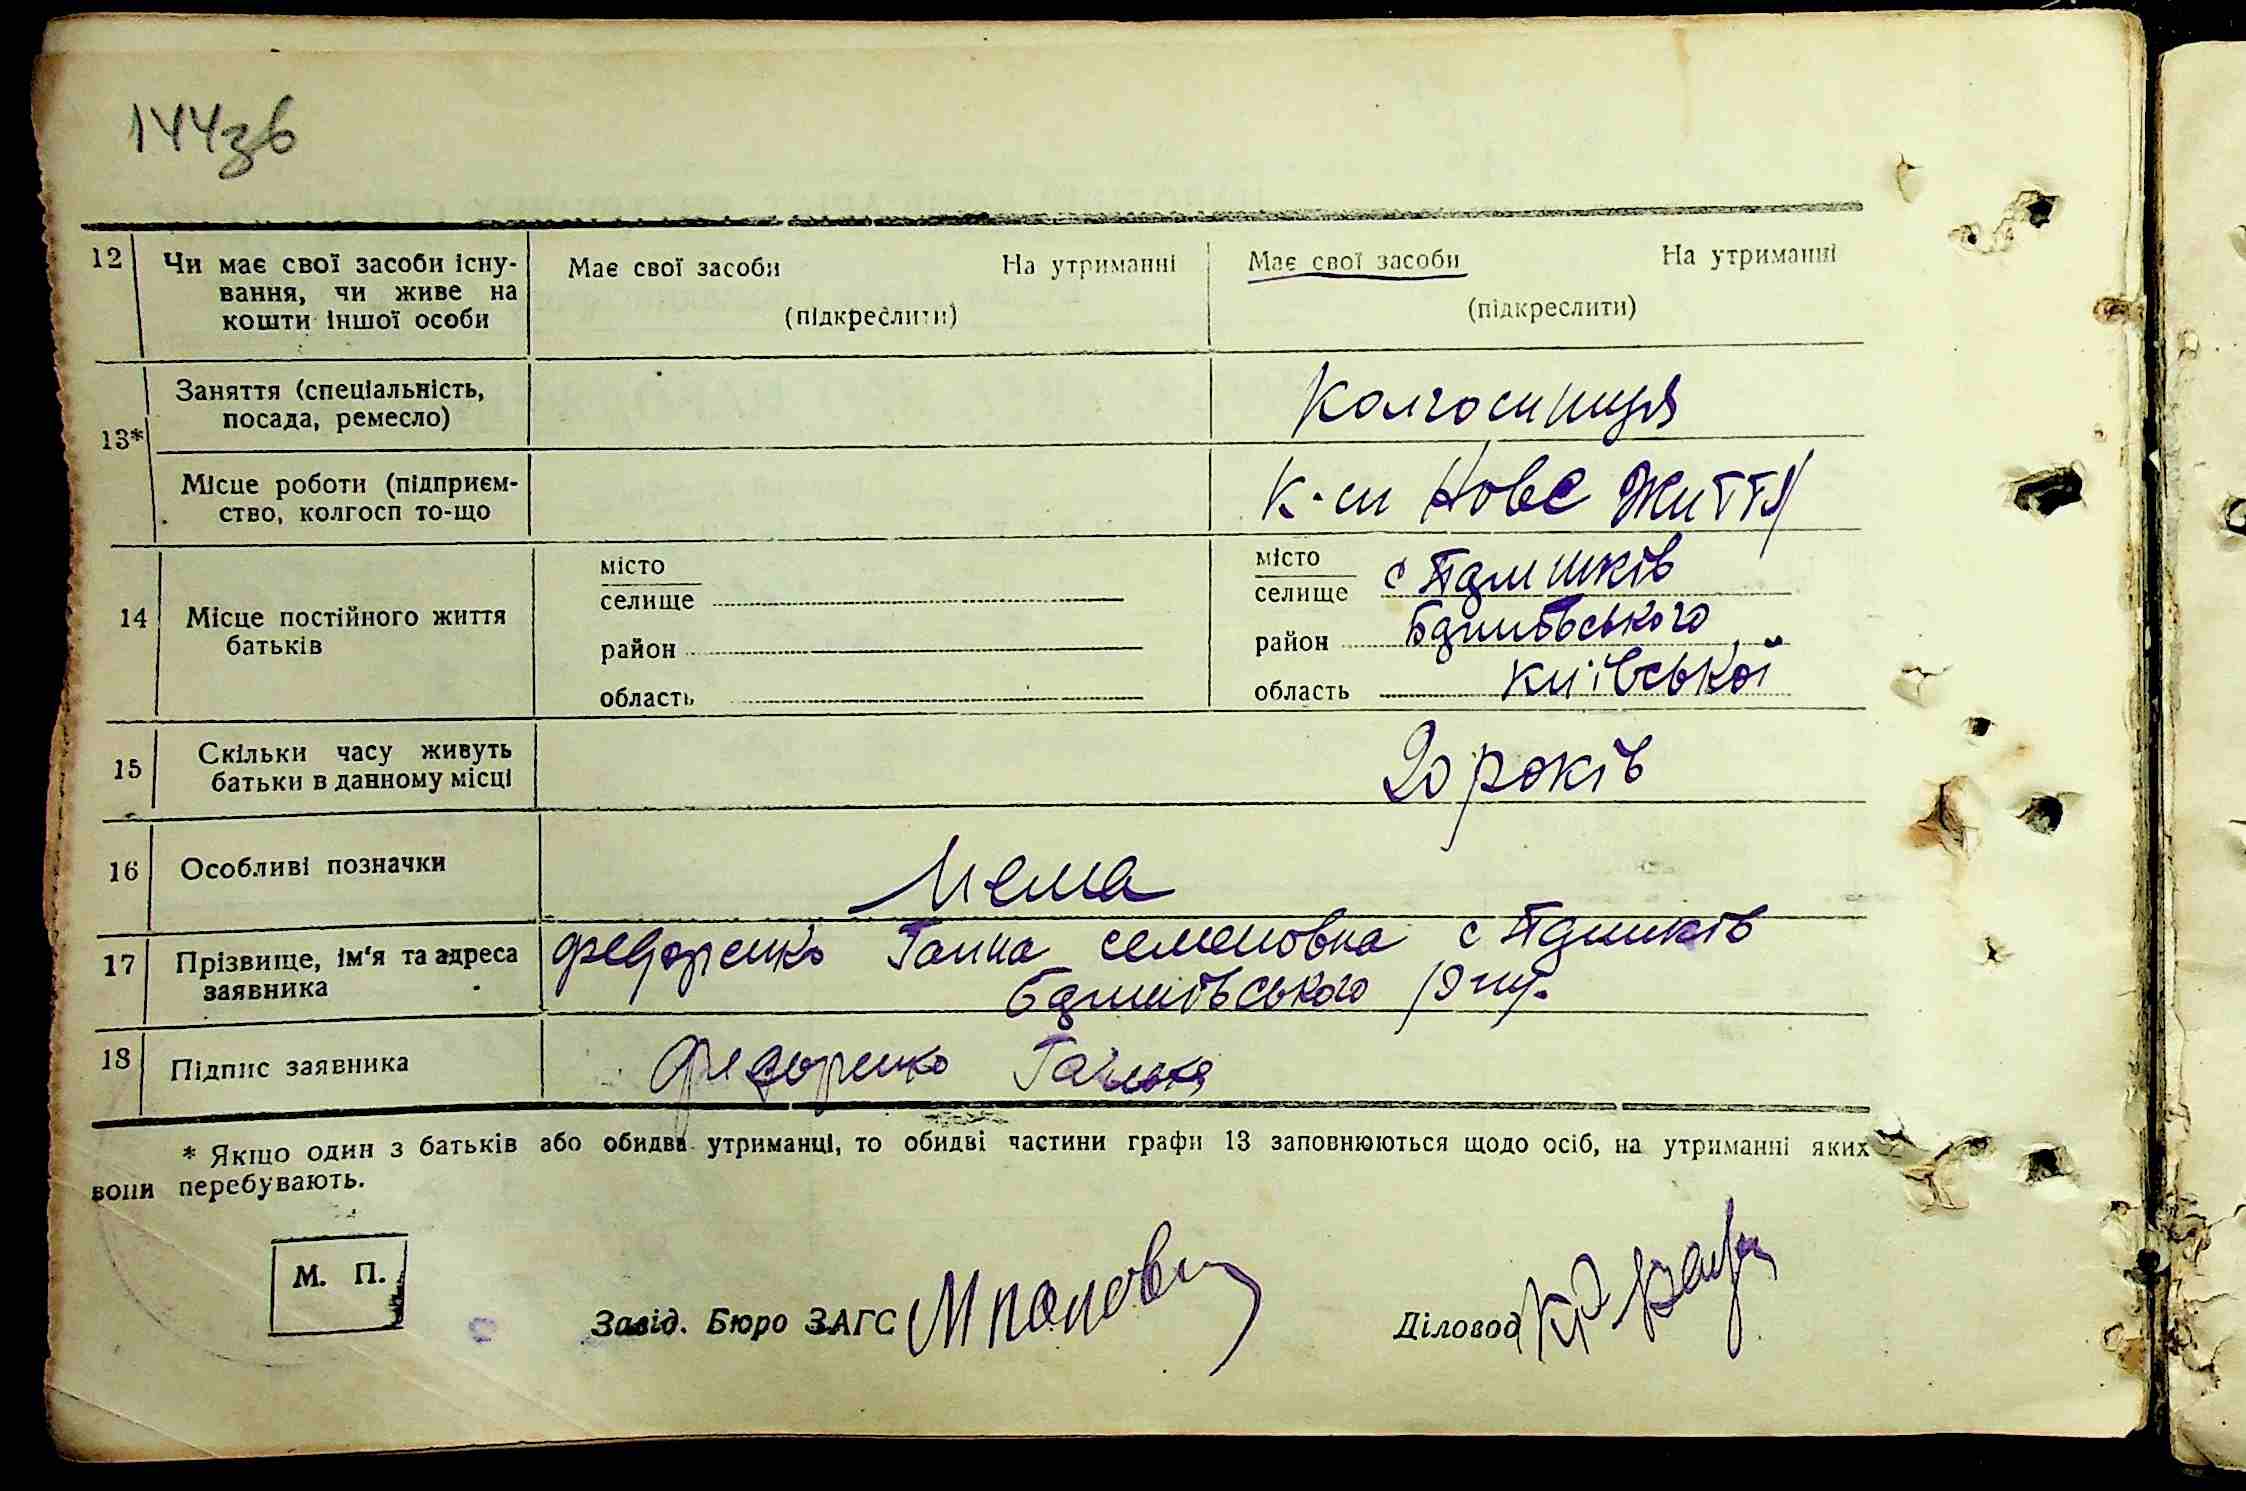 144зв
12 Чи має свої засоби існу-
вання, чи живе на
кошти іншої особи
Має свої засоби На утриманні
(підкреслити)
Має свої засоби На утриманні
(підкреслити)
13*
Заняття (спеціальність,
посада, ремесло)
Колгоспниця
Місце роботи (підприєм-
ство, колгосп то-що
К-сп Нове Життя
14 Місце постійного життя
батьків
місто
селище
район
область
місто
селище с
район
область Київської
15 Скільки часу живуть
батьки в данному місці
20 років
16 Особливі позначки
Нема
17 Прізвище, ім'я та адреса
заявника
Федоренко Ганна Семеновна с
18 Підпис заявника
Федоренко
* Якщо один з батьків або обидва утриманці, то обидві частини графи 13 заповнюються щодо осіб, на утриманні яких
вони перебувають.
М. П.
Завід. Бюро ЗАГС
Діловод